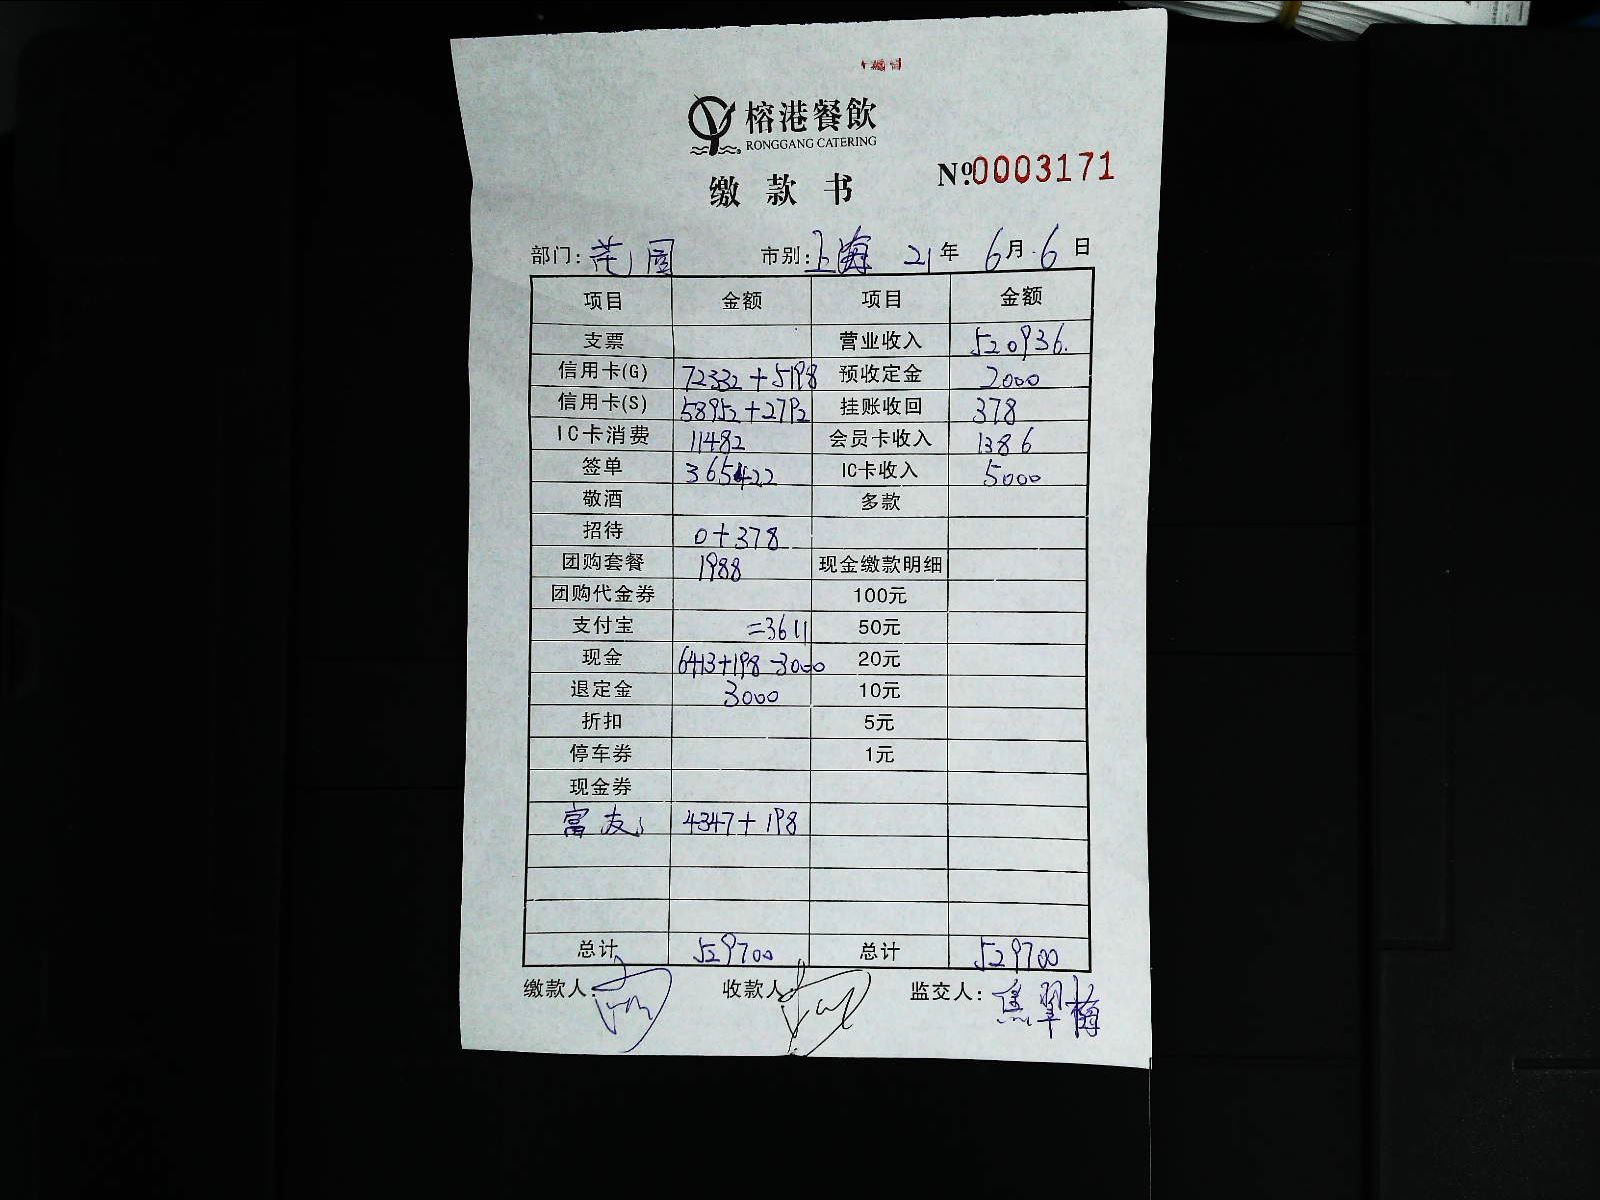 榕港餐飲
RONGGANG CATERING
缴款书 №0003171
部门: 花园 市别: 上海 21年 6月6日
项目 金额 项目 金额
支票 营业收入 520936.
信用卡(G) 72332+5198 预收定金 2000
信用卡(S) 58952+2792 挂账收回 378
IC卡消费 11482 会员卡收入 1386
签单 365422 IC卡收入 5000
敬酒 多款
招待 0+378
团购套餐 1988 现金缴款明细
团购代金券 100元
支付宝 =3611 50元
现金 6413+198-3000 20元
退定金 3000 10元
折扣 5元
停车券 1元
现金券
富友 4347+198
总计 529700 总计 529700
缴款人: 收款人: 监交人: 焦翠梅